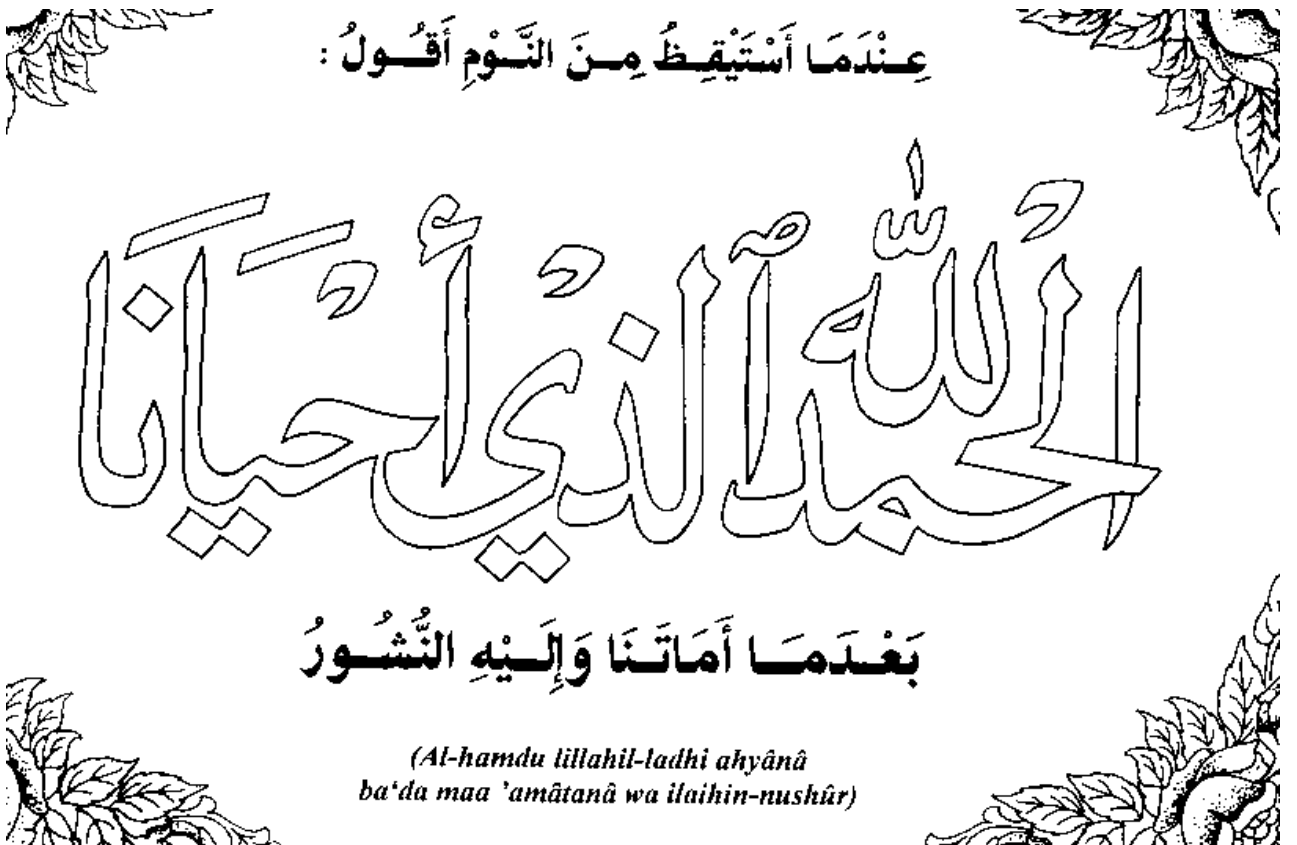 عِنْدَمَا أَسْتَيْقِظُ مِنَ النَّوْمِ أَقُولُ :
الْحَمْدُ لِلّٰهِ ٱلَّذِيْ أَحْيَانَا
بَعْدَمَا أَمَاتَنَا وَإِلَيْهِ النُّشُورُ
(Al-hamdu lillahil-ladhi ahyânâ
ba‘da maa ’amātanâ wa ilaihin-nushûr)